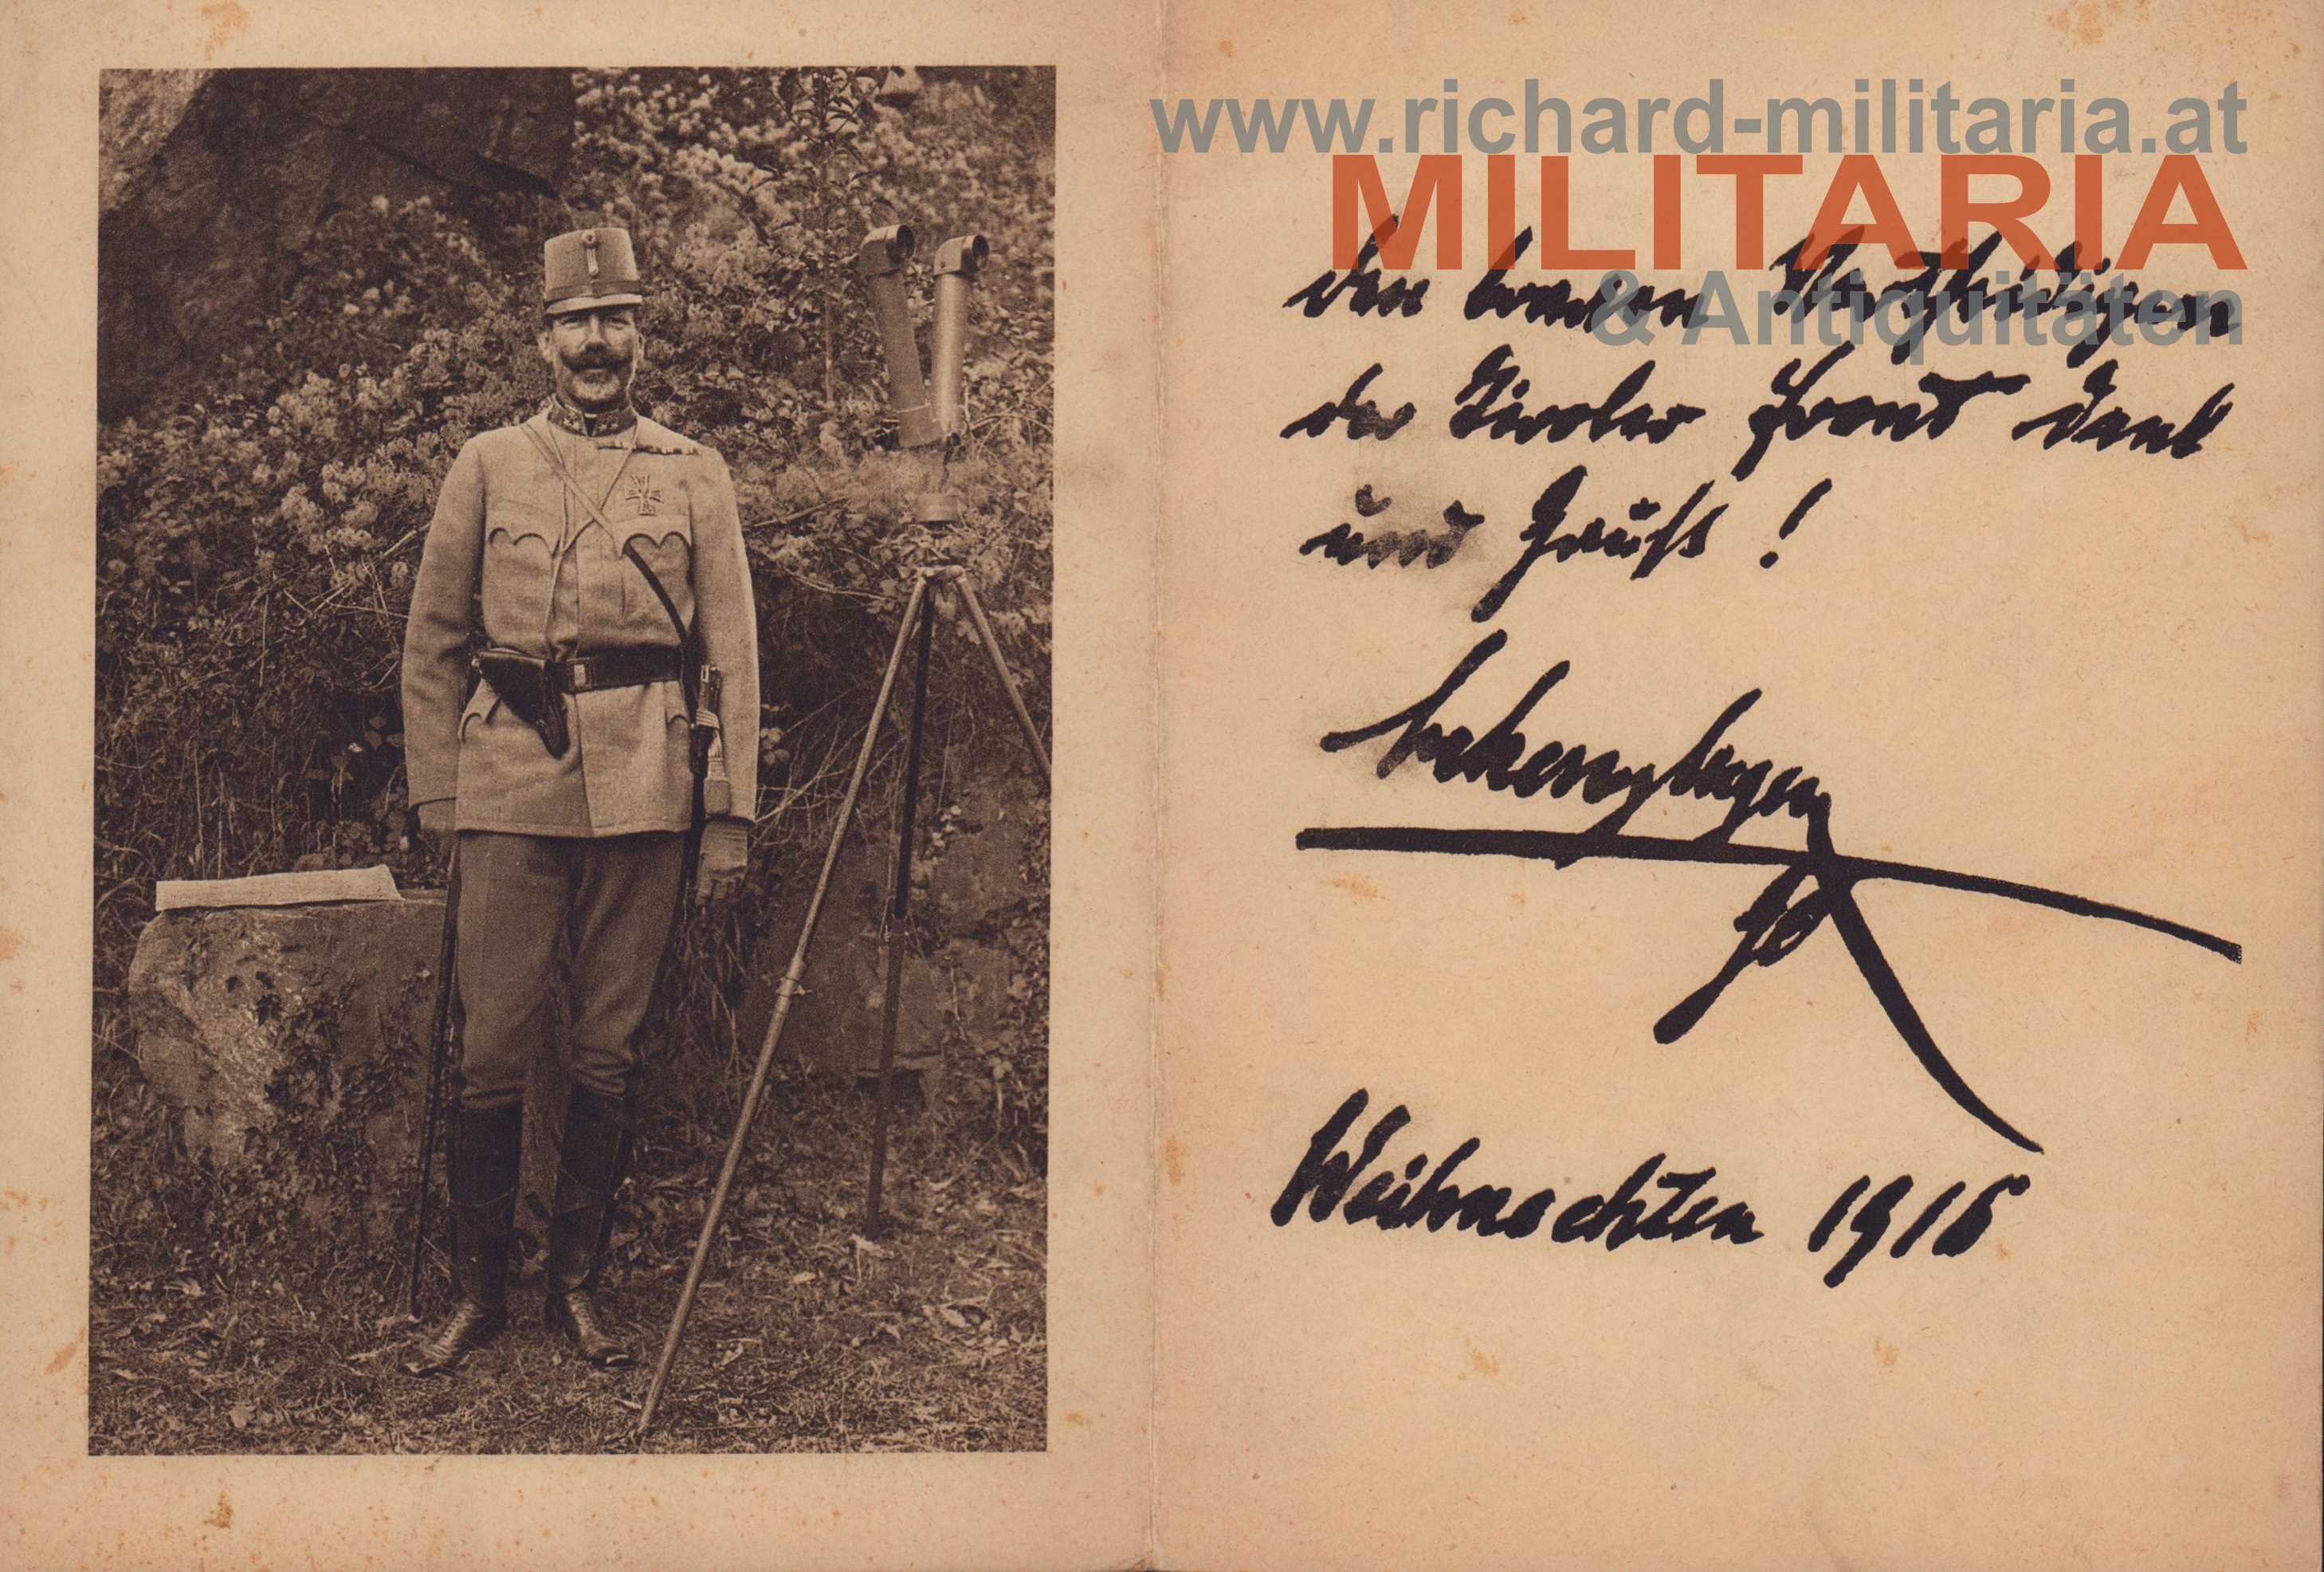 www.richard-militaria.at
MILITARIA
& Antiquitäten
den braven Vertheidigern
der Tiroler Front Dank
und Gruß!
Weihnachten